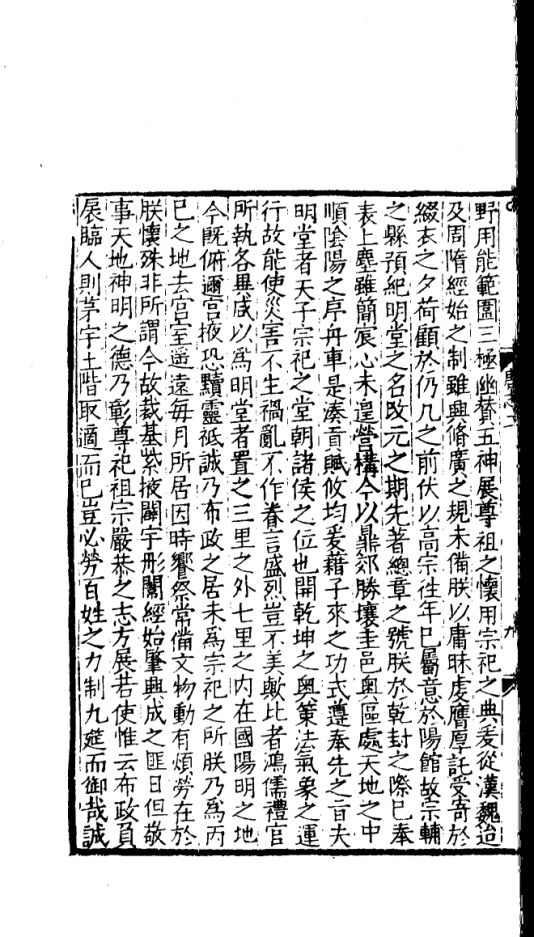 野用能範圍三極幽贊五神展尊祖之懷用宗祀之典爰從漢魏迨
及周隋經始之制雖興脩廣之規未備朕以庸昧虔膺厚託受寄於
綴衣之夕荷顧於仍几之前伏以高宗往年已屬意於陽館故宗輔
之縣預紀明堂之名改元之期先著總章之號朕於乾封之際已奉
表上塵雖簡宸心未遑營構今以鼎郊勝壤圭邑奥區處天地之中
順陰陽之序舟車是湊貢賦攸均爰藉子來之功式遵奉先之旨夫
明堂者天子宗祀之堂朝諸侯之位也開乾坤之奥策法氣象之運
行故能使災害不生禍亂不作眷言盛烈豈不美歟比者鴻儒禮官
所執各異咸以爲明堂者置之三里之外七里之内在國陽明之地
今旣俯邇宮掖恐黷靈祇誠乃布政之居未爲宗祀之所朕乃爲丙
巳之地去宮室遥遠每月所居因時饗祭常備文物動有煩勞在於
朕懷殊非所謂今故裁基紫掖闢宇彤闈經始肇興成之匪日但敬
事天地神明之德乃彰尊祀祖宗嚴恭之志方展若使惟云布政負
扆臨人則茅宇土階取適而已豈必勞百姓之力制九筵而御哉誠